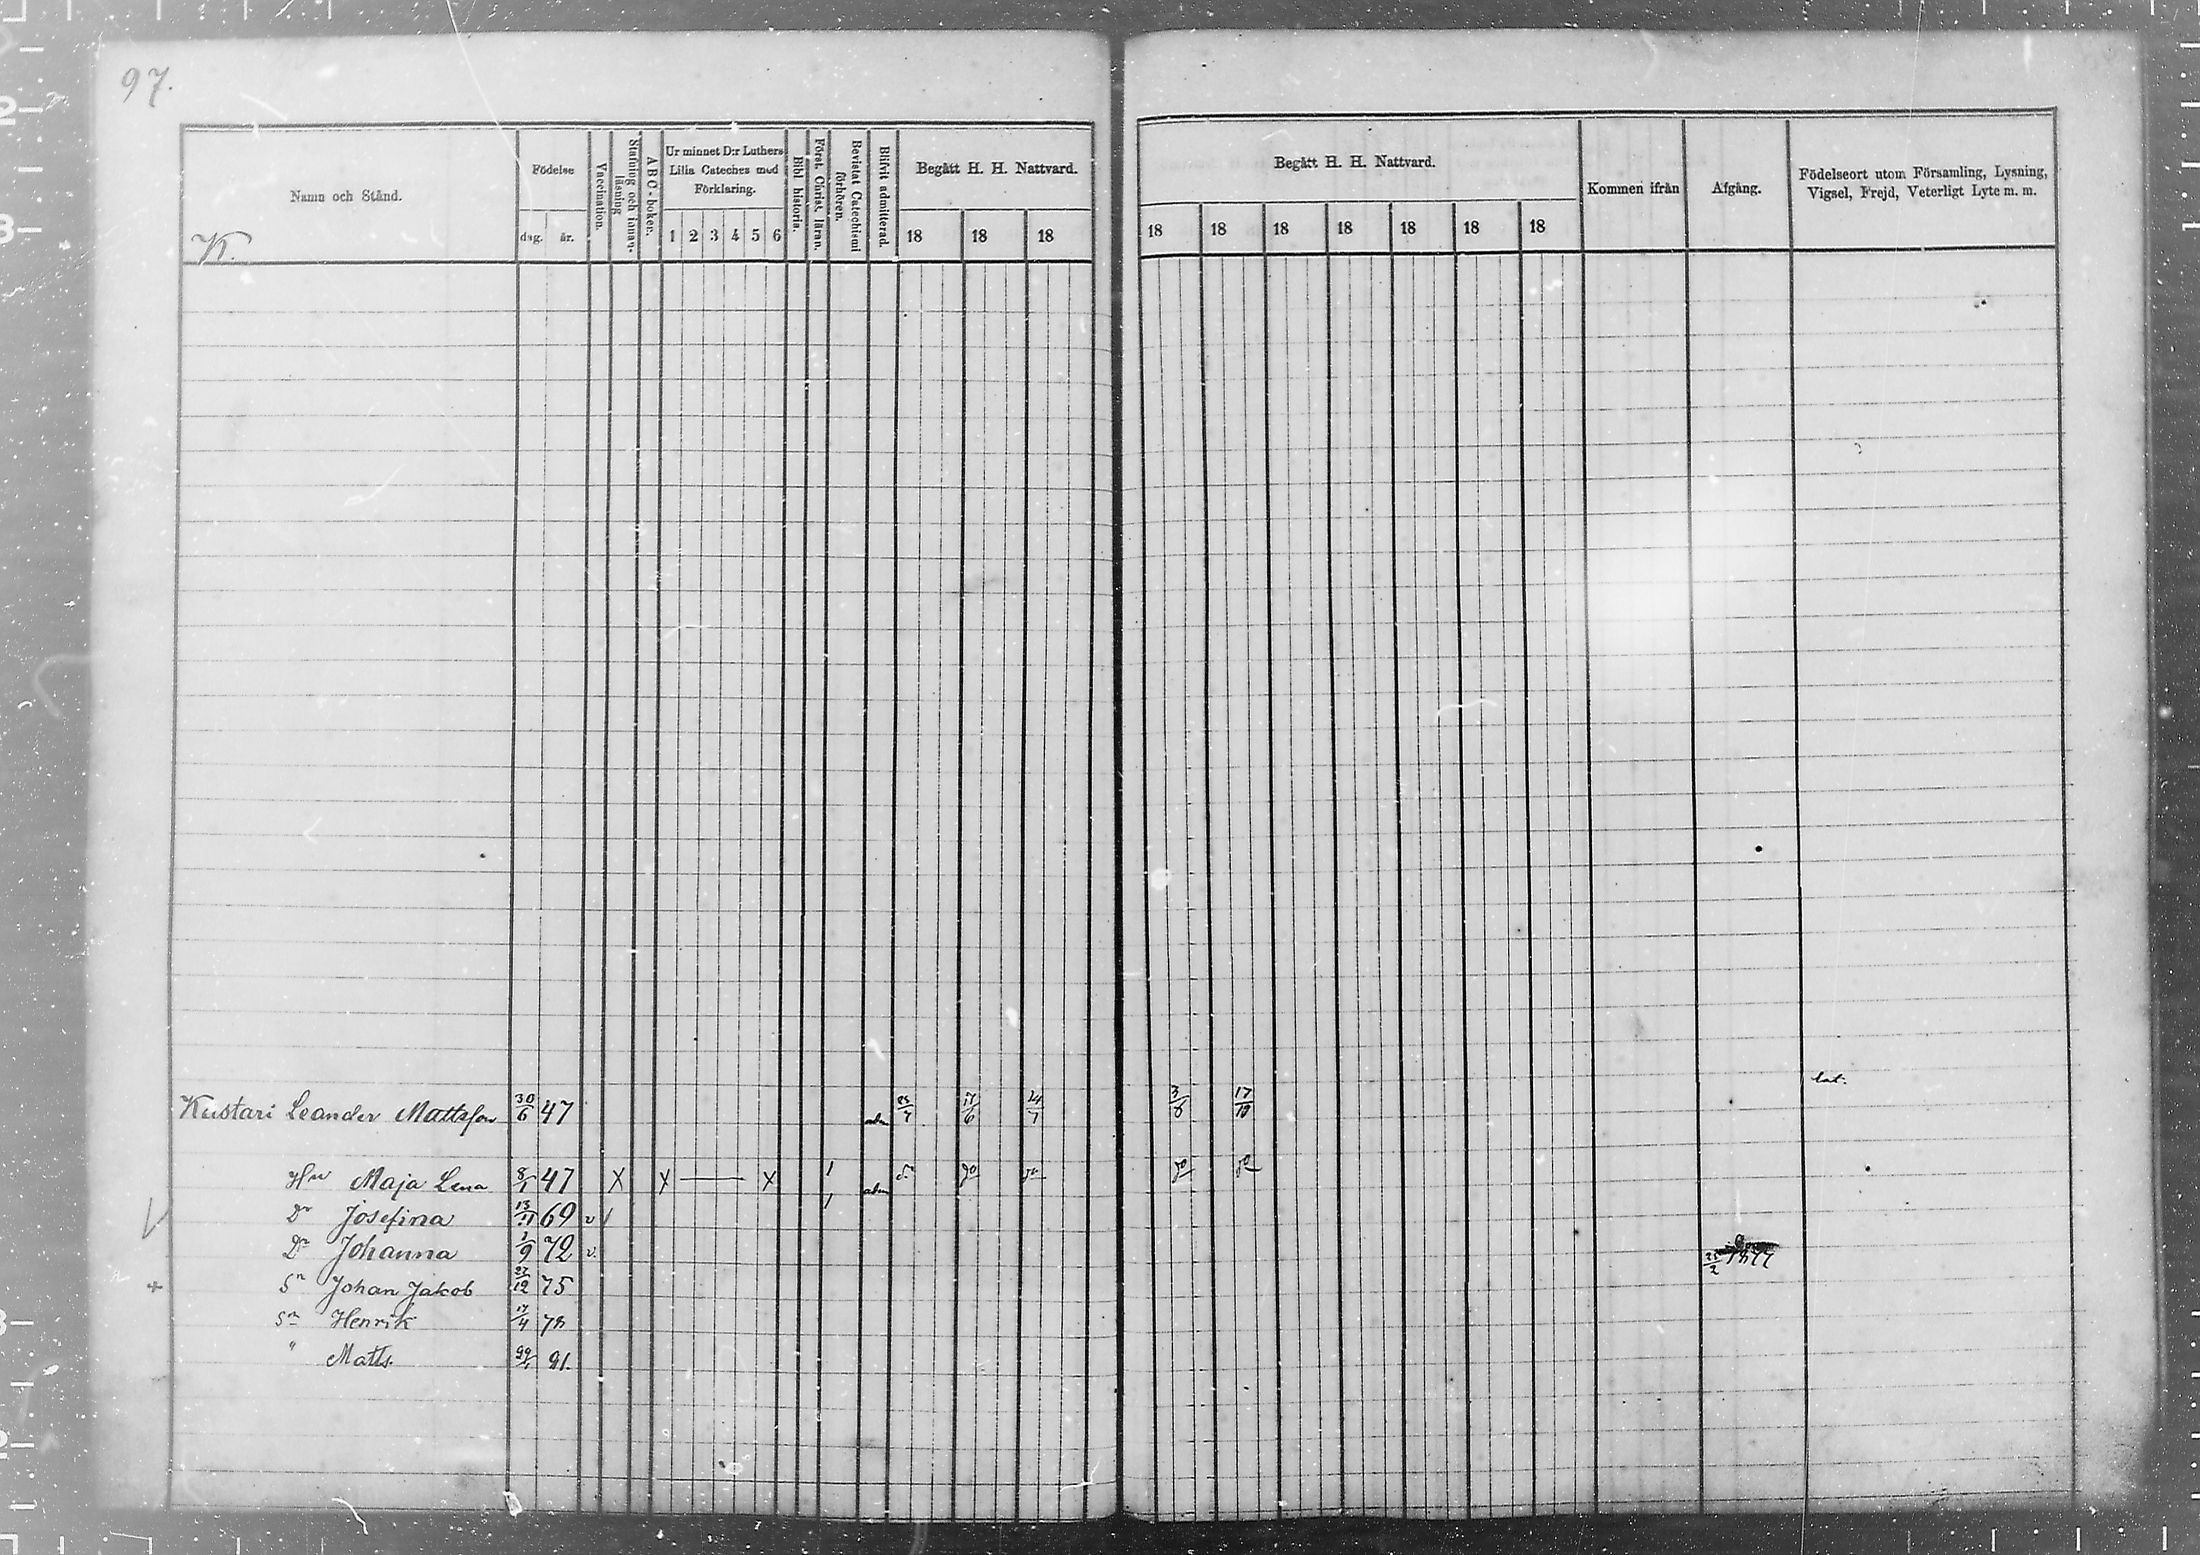 97.
Namn och Stånd.
K.
Födelse
dag. år.
Vaccination.
Stafning och innan-läsning
ABC-boken.
Ur minnet D:r Luthers
Lilla Cateches med
Förklaring.
1 2 3 4 5 6
Bibl. historia.
Först. Christ. läran.
Bevistat Catechismi förhören.
Blifvit admitterad.
Begått H. H. Nattvard.
18 18 18
Begått H. H. Nattvard.
18 18 18 18 18 18 18
Kommen ifrån
Afgång.
Födelseort utom Församling, Lysning,
Vigsel, Frejd, Veterligt Lyte m. m.
Kustari Leander Mattsson 30/6 47 adm 25/7 17/6 24/7 3/6 17/10
Hu Maja Lena 8/1 47 X X — X 1 adm do do do do do
Dr Josefina 13/11 69 v / 1
Dr Johanna 1/9 72 v. 25/2 1877
Sn Johan Jakob 27/12 75
Sn Henrik 17/4 78
" Matts. 81.